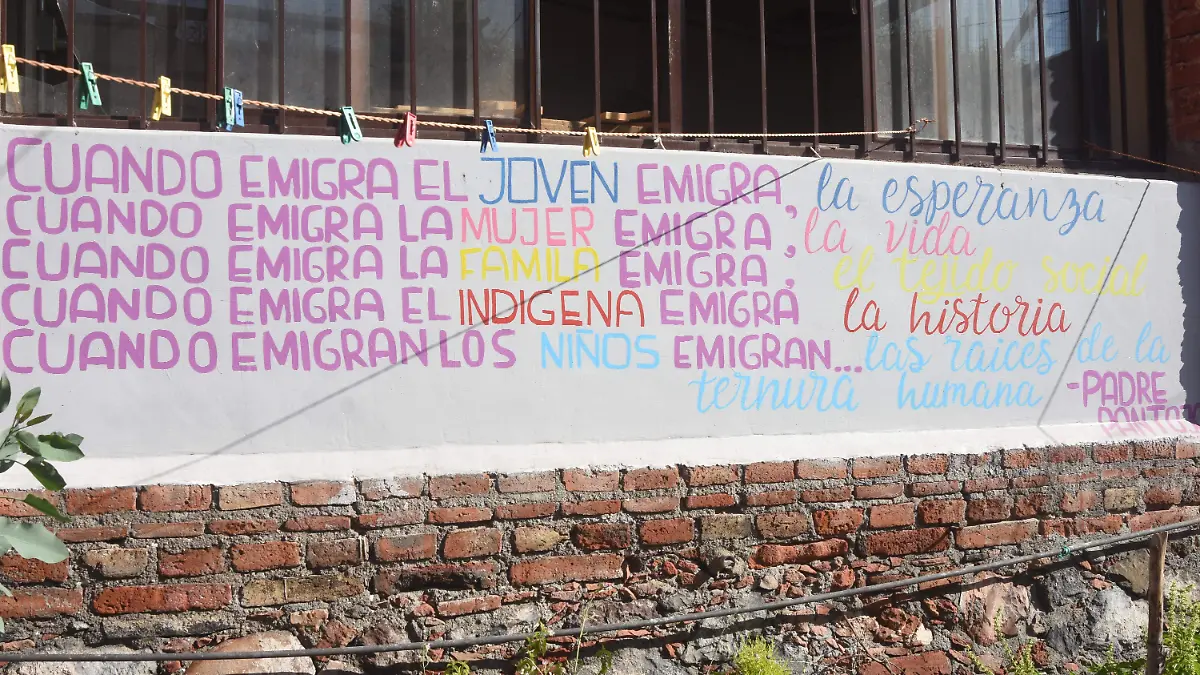 CUANDO EMIGRA EL JOVEN EMIGRA, la esperanza
CUANDO EMIGRA LA MUJER EMIGRA, la vida
CUANDO EMIGRA LA FAMILA EMIGRA, el tejido social
CUANDO EMIGRA EL INDIGENA EMIGRA la historia
CUANDO EMIGRAN LOS NIÑOS EMIGRAN... las raices de la
ternura humana -PADRE
PANTOJA